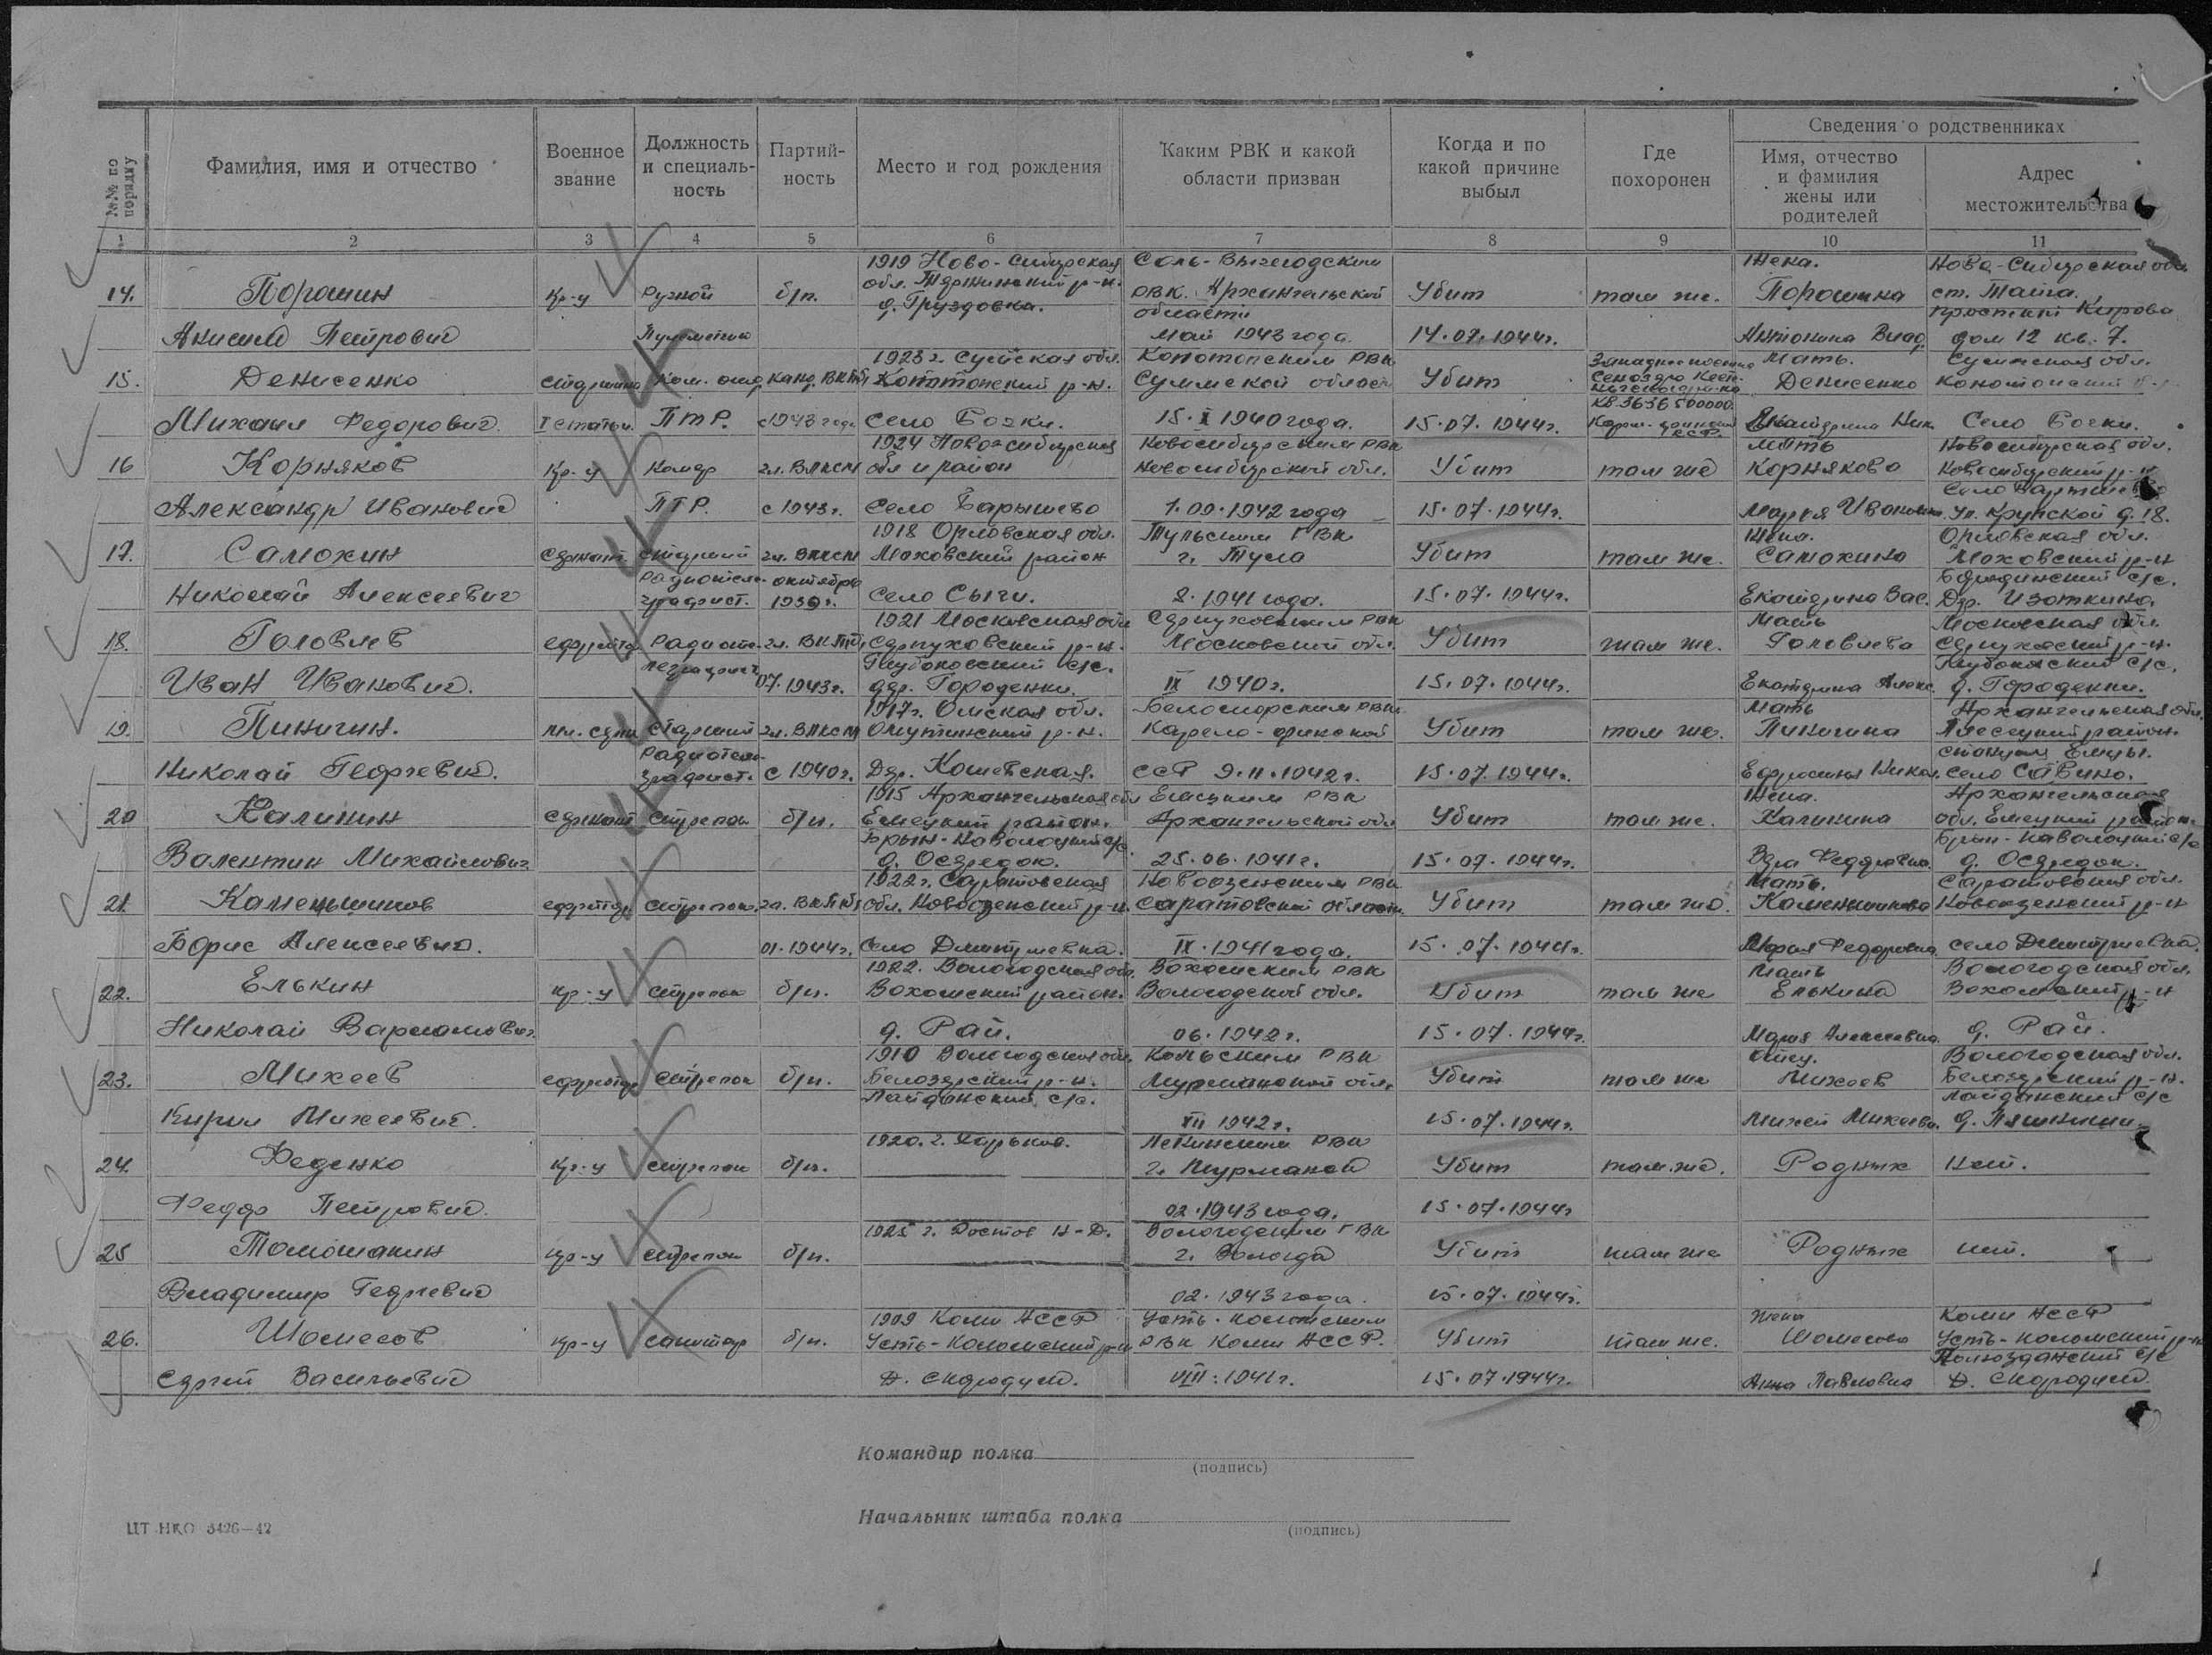 №№ по порядку
Фамилия, имя и отчество
Военное звание
Должность и специаль-ность
Партий-ность
Место и год рождения
Каким РВК и какой области призван
Когда и по какой причине выбыл
Где похоронен
Сведения о родственниках
Имя, отчество и фамилия жены или родителей
Адрес местожительства
1 2 3 4 5 6 7 8 9 10 11
14. Порошин Кр-ц Ручной б/п. 1919 Ново-Сибирская обл. д. Груздовка. Соль-Вычегодским РВК. Архангельской области Убит там же. Жена. Порошина Ново-Сибирская обл. ст. Тайга. проспект Кирова
Анисим Петрович май 1943 года. 14.07.1944г. Антонина Влад. дом 12 кв. 7.
15. Денисенко старшина Ком. отд. канд. ВКПб 1923 г. Сумская обл. Конотопский р-н. Конотопским РВК Сумской области Убит Мать. Денисенко Сумская обл. Конотопский
Михаил Федорович I статьи. ПТР. с 1943 года Село Бочки. 15. X 1940 года. 15.07.1944г. Екатерина Ник. Село Бочки.
16 Корняков Кр-ц Комдр чл. ВЛКСМ 1924 Новосибирская обл и район Новосибирским РВК Новосибирской обл. Убит там же Мать Корнякова Новосибирская обл. Новосибирский р-н Село Барышево
Александр Иванович ПТР. с 1943г. Село Барышево 1.09.1942 года 15.07.1944г. Мария Ивановн. Ул. Крупской д. 18.
17. Самохин Сержант. Старший чл. ВЛКСМ 1918 Орловская обл. Моховский район Тульским ГВК г. Тула Убит там же. Жена. Самохина Орловская обл. Моховский р-н
Николай Алексеевич радиотеле-графист. октябрь 1939г. Село Сычи. 8.1941 года. 15.07.1944г. Екатерина Вас. Дер. Изоткино.
18. Головлев ефрейтор Радиоте-леграфист чл. ВКПб, 1921 Московская обл Серпуховский р-н. Серпуховским РВК Московской обл. Убит там же. Мать Головлева Московская обл. Серпуховский р-н.
Иван Иванович. 07.1943г. дер. Городенки. IX 1940г. 15.07.1944г. Екатерина Алекс. д. Городенки.
19. Пинигин. мл. серж Старший чл. ВЛКСМ 1917г. Омская обл. Омутинский р-н. Беломорским РВК. Карело-финской Убит там же. Мать Пинигина Архангельская обл. Плесецкий район. станция Емцы.
Николай Георгевич. Радиотеле-графист. с 1940г. Дер. Кошевская. ССР 9.11.1942г. 15.07.1944г. Ефросинья Никол. село Савино.
20 Калинин Сержант Стрелок б/п. 1915 Архангельская обл Емецкий район. Емецким РВК Архангельской обл Убит там же. Жена. Калинина Архангельская обл. Емецкий район.
Валентин Михайлович д. Осередок. 25.06.1941г. 15.07.1944г. Вера Федоровна. д. Осередок.
21. Каменьщиков ефрейтор Стрелок. чл. ВКПб, 1922г. Саратовская обл. Новоузенский р-н. Новоузенским РВК Саратовской области. Убит там же. Мать. Каменьшикова Саратовская обл. Новоузенский р-н
Борис Алексеевич. 01.1944г. Село Дмитриевка. IX.1941 года. 15.07.1944г. Мария Федоровна. село Дмитриевка.
22. Елькин Кр-ц Стрелок б/п. 1922. Вологодская обл. Вохомский район. Вохомским РВК Вологодской обл. Убит там же Мать Елькина Вологодская обл. Вохомский р-н
Николай Варламович. д. Рай. 06.1942г. 15.07.1944г. Мария Алексеевна. д. Рай.
23. Михеев ефрейтор Стрелок б/п. 1910 Вологодская обл. Белозерский р-н. Кольским РВК Мурманской обл. Убит там же отец. Михеев Вологодская обл. Белозерский р-н.
Кирил Михеевич. VII 1942г. 15.07.1944г. Михей Михеевич.
24. Феденко Кр-ц Стрелок б/п. 1920. г. Харьков. Ленинским РВК г. Мурманск Убит там же. Родных нет.
Федор Петрович. 02.1943 года. 15.07.1944г
25 Кр-ц Стрелок б/п. 1925 г. Ростов Н-Д. Вологодским ГВК г. Вологда Убит там же Родных нет.
Владимир Георгевич 02.1943 года. 15.07.1944г.
26. Шомесов Кр-ц Санитар б/п. 1909 Коми АССР Усть-Коломский р-н Усть-Коломским РВК Коми АССР. Убит там же. Жена Шомесова Коми АССР Усть-Коломский р-н
Сергей Васильевич Д. Скородум. VIII.1941г. 15.07.1944г. Анна Павловна Д. Скородум.
Командир полка
(подпись)
Начальник штаба полка
(подпись)
ЦТ НКО 3426—42